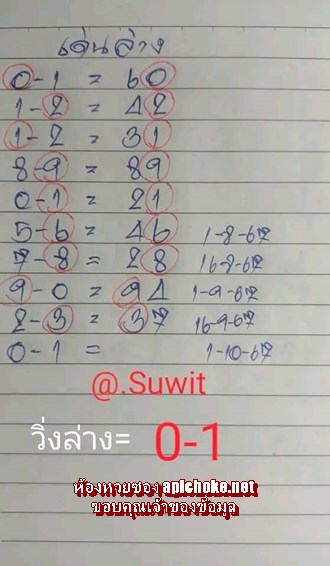 เด่นล่าง
0-1 = 60
1-2 = 42
1-2 = 31
8-9 = 89
0-1 = 21
5-6 = 46 1-8-67
7-8 = 28 16-8-67
9-0 = 94 1-9-67
2-3 = 37 16-9-67
0-1 = 1-10-67
@.Suwit
วิ่งล่าง= 0-1
ห้องหวยซอง apichoke.net
ขอบคุณเจ้าของข้อมูล